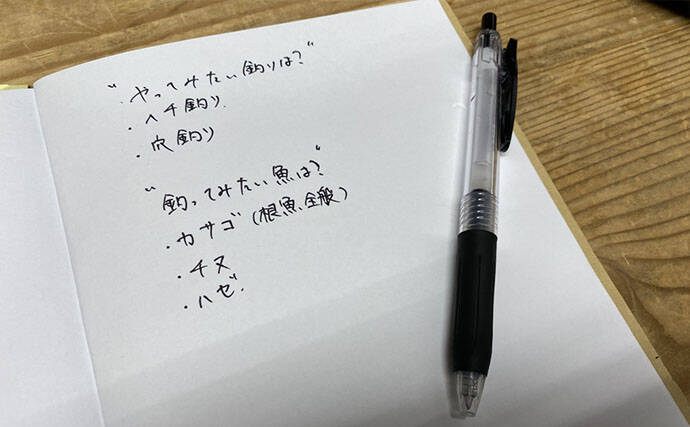 "やってみたい釣りは?"
・ヘチ釣り
・穴釣り
"釣ってみたい魚は?"
・カサゴ(根魚、全般)
・チヌ
・ハゼ